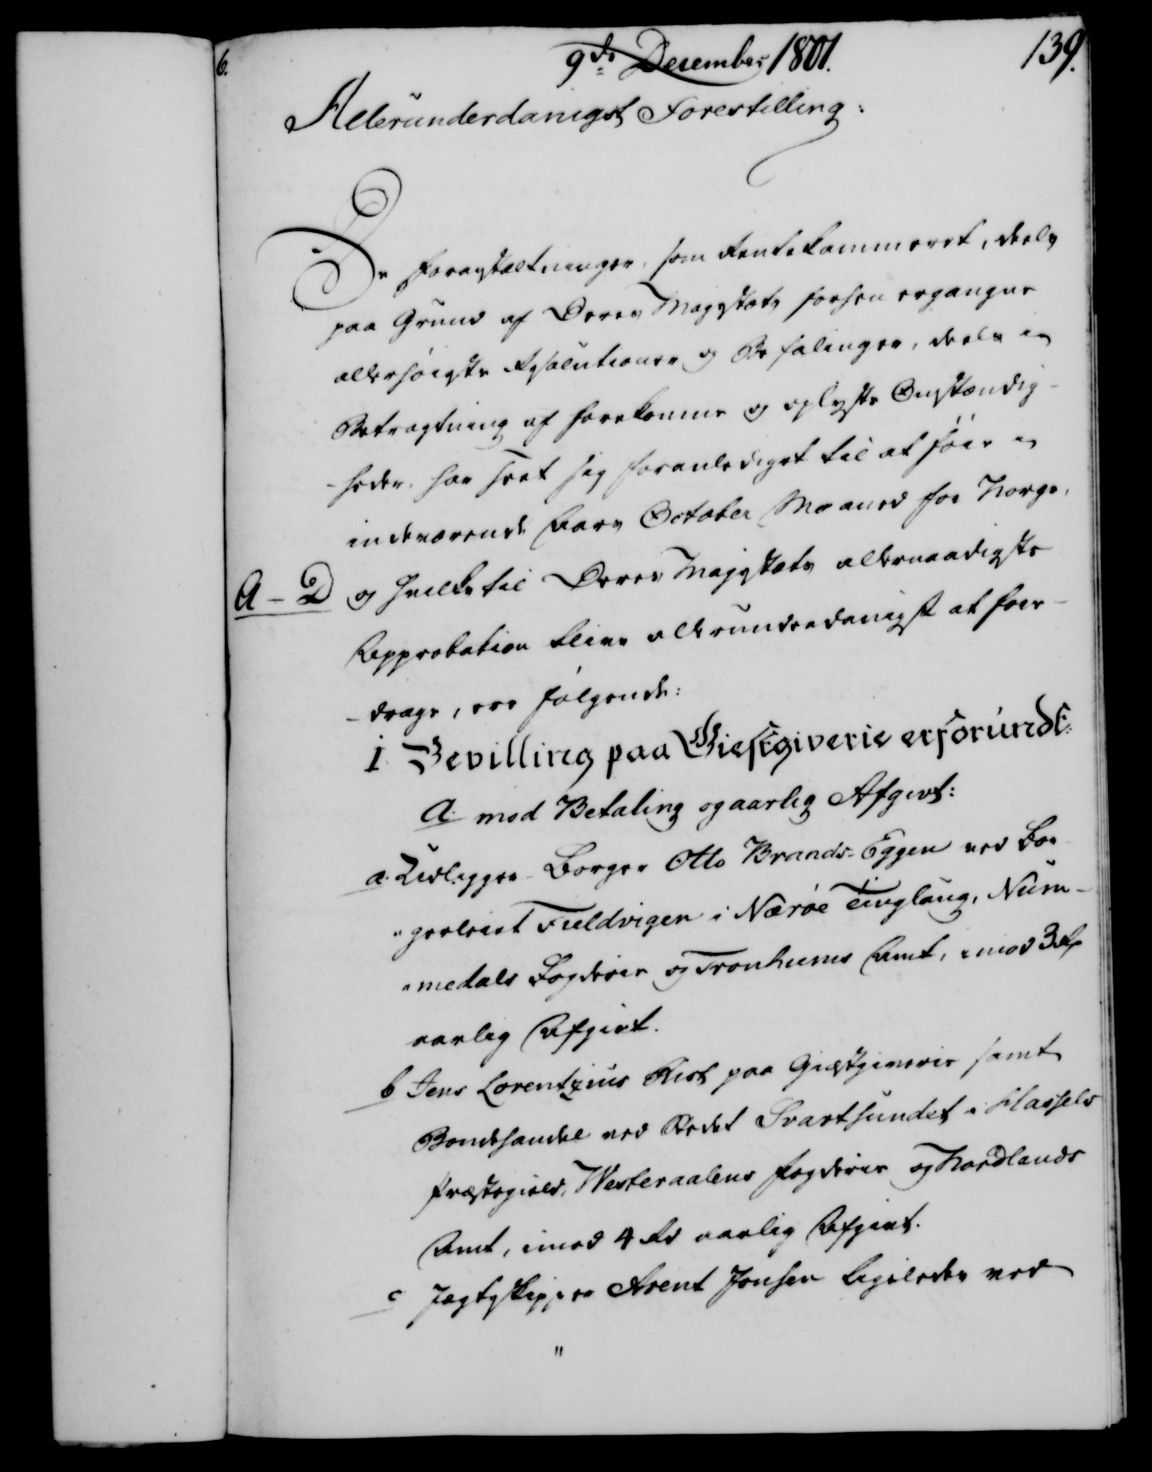 6.
9de December 1801.
139.
Allerunderdanigst Forestilling:
De Foranstaltninger, som Rentekammeret, deels
paa Grund af Deres Majestæts forhen ergangne
allerhöigste Resolutioner og Befalinger, deels i
Betragtning af forekomne og oplyste Omstændig-
-heder, har seet sig foranlediget til at föie i
indeværende Aars October Maaned for Norge,
A-D og hvilke til Deres Majestæts allernaadigste
Approbation blive allerunderdanigst at fore-
-drage, ere følgende:
1 Bevilling paa Giestgiverie
A. mod Betaling og aarlig Afgivt:
a. Udligger-Borger Otto Brands-Eggen ved
Fieldvigen i Nærøe Tinglaug, Num-
-medals Fogderie og Tronhiems Amt, imod 3 Rd
aarlig Afgivt.
b Jens Lorentzius Rist paa Giestgiverie samt
Bondehandel ved Stedet Svartsundet i Hassels
Præstegield, Westeraalens Fogderie og Nordlands
Amt, imod 4 Rd aarlig Afgivt.
c Jægteskipper Arent Jensen ligeledes ved
"